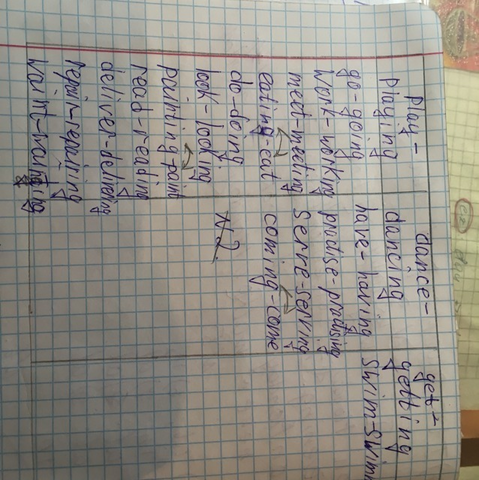 play-
playing
go-going
work-working
meet-meeting
eating-eat
do-doing
look-looking
painting-paint
read-reading
deliver-delivering
repair-repairing
dance-
dancing
have-having
practise-practising
serve-serving
coming-come
N2.
get-
getting
swim-swimm